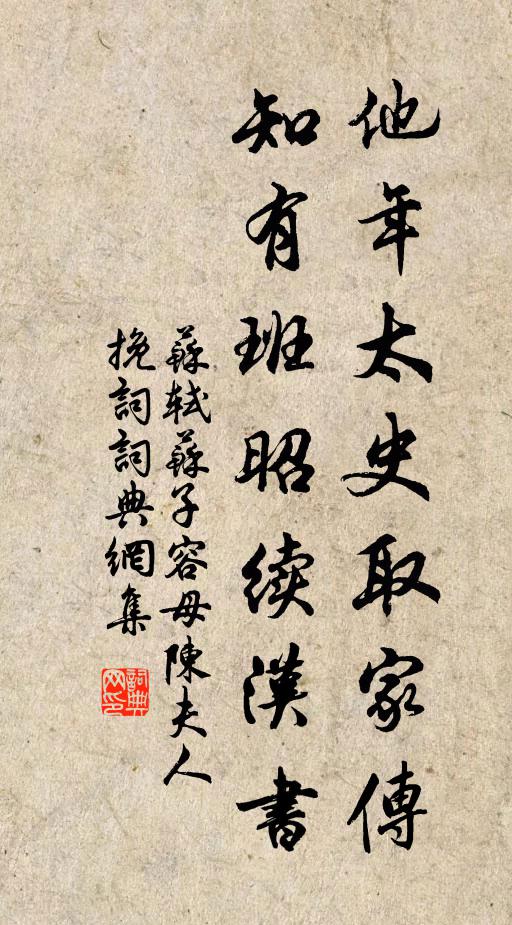 他年太史取家傳
知有班昭續漢書
蘇軾蘇子容母陳夫人
挽詞詞典網集
詞典
网印